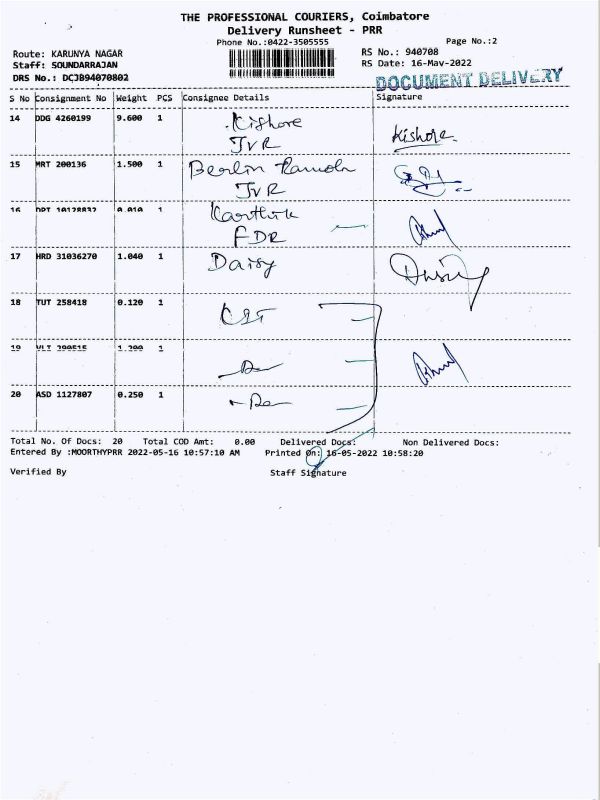 THE PROFESSIONAL COURIERS, Coimbatore
Delivery Runsheet - PRR
Phone No.:0422-3505555
Page No.:2
Route: KARUNYA NAGAR
RS No.: 940708
Staff: SOUNDARRAJAN
RS Date: 16-May-2022
DRS No.: DCJB94070802
DOCUMENT DELIVERY
S No Consignment No Weight PCS Consignee Details Signature
14 DDG 4260199 9.600 1 Kishore Kishore
JVR
15 MRT 200136 1.500 1 Berlin
JVR
16 DPT 10128832 0.010 1 Karthik
FDR
17 HRD 31036270 1.040 1 Daisy
18 TUT 258418 0.120 1
19 VLT 1.200 1
20 ASD 1127807 0.250 1
Total No. Of Docs: 20 Total COD Amt: 0.00 Delivered Docs: Non Delivered Docs:
Entered By :MOORTHYPRR 2022-05-16 10:57:10 AM Printed On: 16-05-2022 10:58:20
Verified By Staff Signature